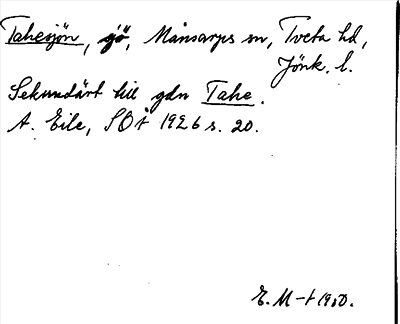 Tahesjön, sjö, Månsarps sn, Tveta hd,
Jönk. l.
Sekundärt till gdn Tahe.
A. Eile, SOÅ 1926 s. 20.
E. M-t 1950.